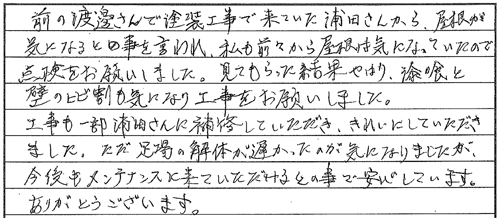 前の渡邊さんで塗装工事で来ていた浦田さんから、屋根が
気になるとの事を言われ、私も前々から屋根は気になっていたので
点検をお願いしました。見てもらった結果やはり、漆喰と
壁のヒビ割も気になり工事をお願いしました。
工事も一部浦田さんに補修していただき、きれいにしていただき
ました。ただ足場の解体が遅かったのが気になりましたが、
今後もメンテナンスに来ていただけるとの事で安心しています。
ありがとうございます。